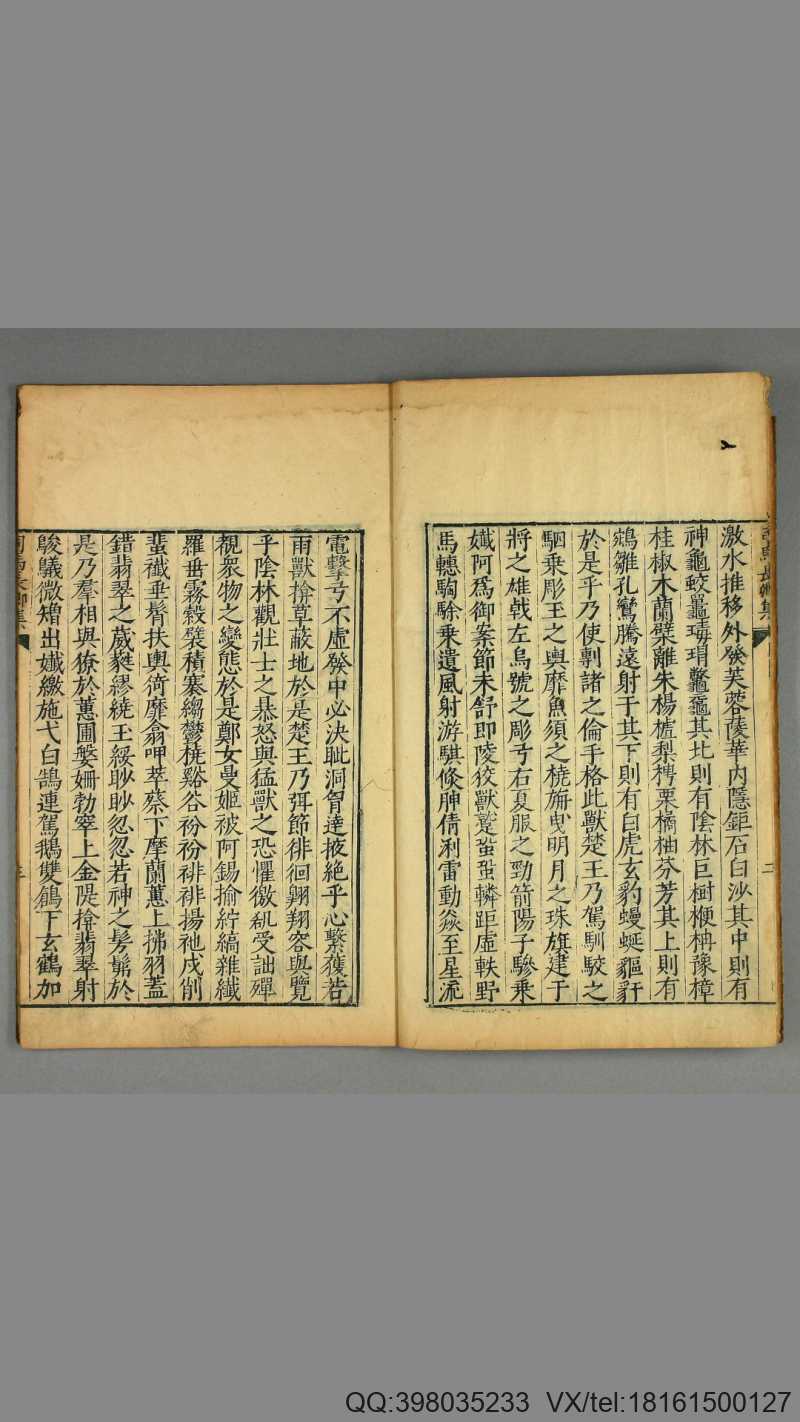 激水推移外發芙蓉蔆華内隱鉅石白沙其中則有
神龜蛟鼉瑇瑁鼈黿其北則有陰林巨樹楩枏豫樟
桂椒木蘭檗離朱楊樝梨梬栗橘柚芬芳其上則有
鵷雛孔鸞騰遠射干其下則有白虎玄豹蟃蜒貙豻
於是乎乃使剸諸之倫手格此獸楚王乃駕馴駮之
駟乘彫玉之輿靡魚須之橈旃曳明月之珠旗建干
將之雄戟左烏號之彫弓右夏服之勁箭陽子驂乘
孅阿爲御案節未舒即陵狡獸蹵蛩蛩轔距虚軼野
馬轊騊駼乘遺風射游騏倏胂倩浰雷動焱至星流
電擊弓不虚發中必決眦洞胷達掖絶乎心繋獲若
雨獸揜草蔽地於是楚王乃弭節徘徊翺翔容與覽
乎陰林觀壯士之暴怒與猛獸之恐懼徼𠊱受詘殫
覩衆物之變態於是鄭女曼姬被阿錫揄紵縞雜纖
羅垂霧縠襞積褰縐鬱橈谿谷衯衯裶裶揚袘戌削
蜚襳垂髾扶輿猗靡翕呷萃蔡下摩蘭蕙上拂羽蓋
錯翡翠之葳蕤繆繞玉綏眇眇忽忽若神之髣髴於
是乃羣相與獠於蕙圃媻姍勃窣上金隄揜翡翠射
鵔鸃微矰出孅繳施弋白鵠連駕鵝雙鶬下玄鶴加
QQ:398035233 VX/tel:18161500127